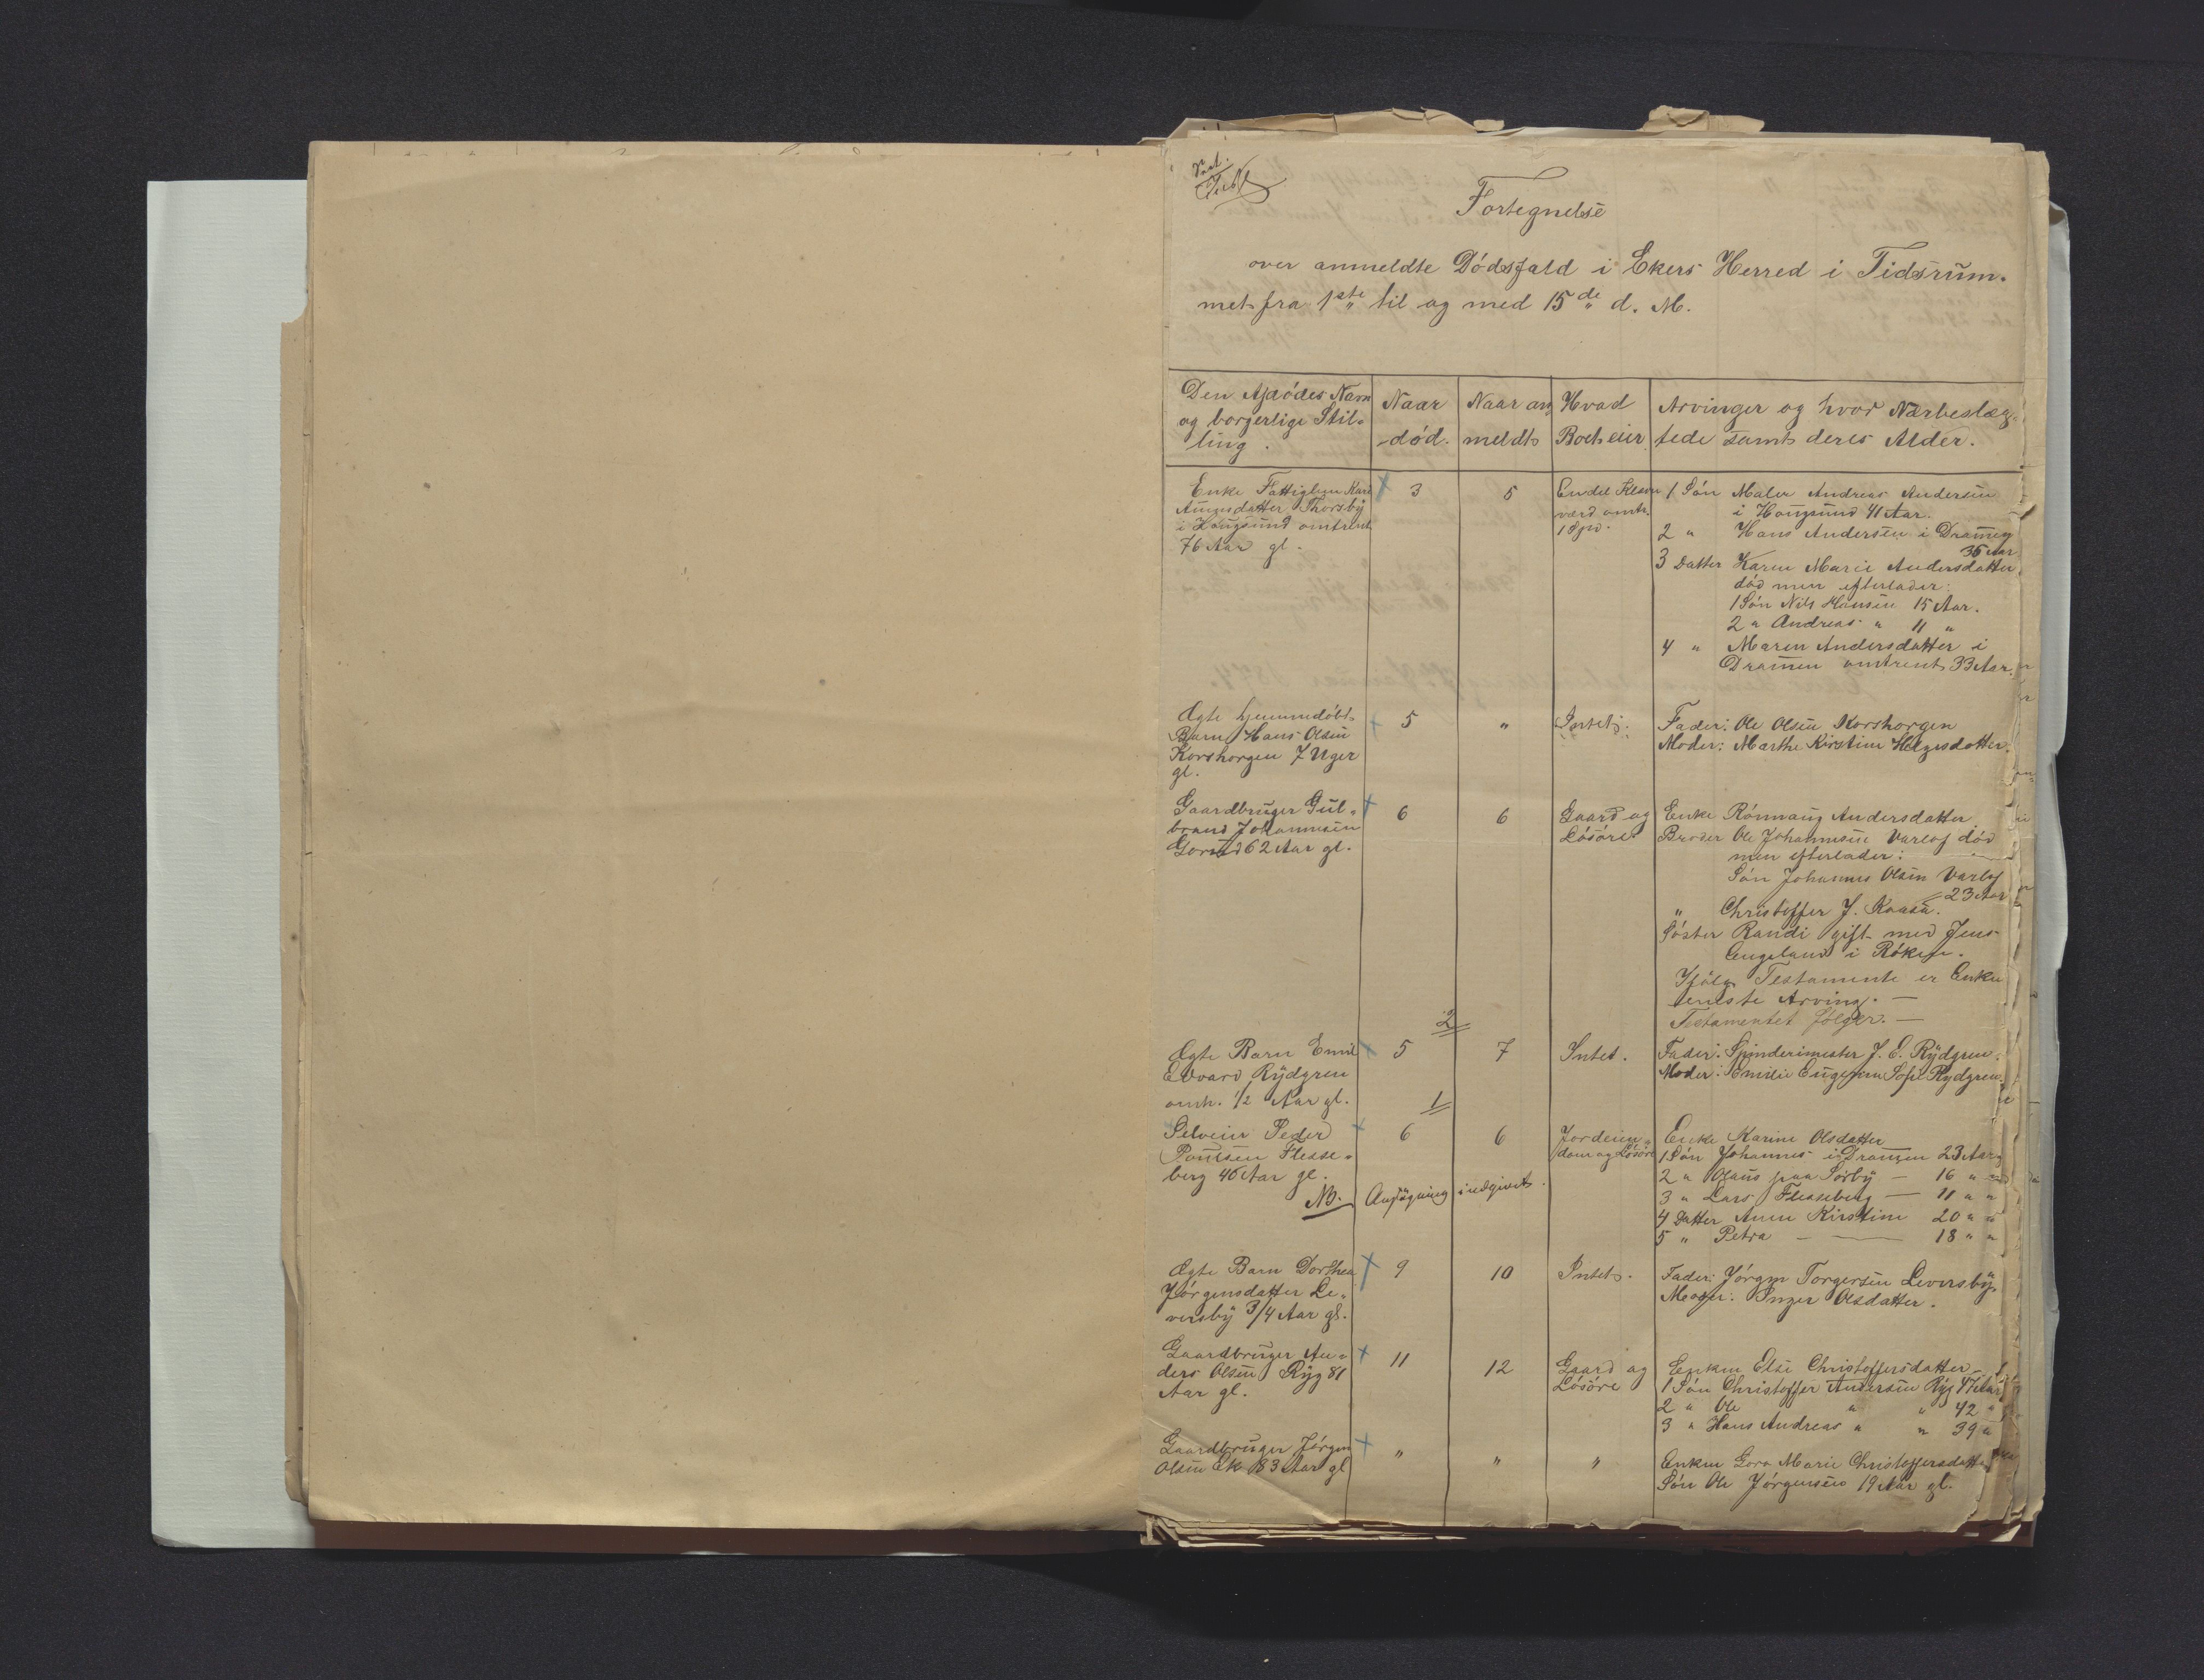 Fortegnelse
over anmeldte Dødsfald i Ekers Herred i Tidsrum-
met fra 1ste til og med 15de d. M.
Den Afdødes Navn
og borgerlige Stil-
ling.
Naar
død.
Naar an-
meldt
Hvad
Boet eier
Arvinger og hvor Nærbeslæg-
tede samt deres Alder.
Enke Fattiglem Kari
Thorsby
i Hougsund omtrent
76 Aar gl.
3
5
Endel Klæder
værd omtr.
1 Søn Maler Andreas Andersen
i Hougsund 41 Aar.
2 " Hans Andersen i Dramen
35 Aar
3 Datter Karen Marie Andersdatter
død men efterlader:
1 Søn Nils Hansen 15 Aar.
2 " Andreas " 11 "
4 " Maren Andersdatter i
Dramen omtrent 33 Aar.
Ægte hjemmedøbt
Barn Hans Olsen
Korshorgen 7 Uger
gl.
5
"
Intet.
Fader: Ole Olsen Korshorgen
Moder: Marthe Kirstine Helgesdatter.
Gaardbruger Gul-
brand Johannesen
62 Aar gl.
6
6
Gaard og
Løsøre
Enke Rønnaug Andersdatter
Broder Ole Johannesen Varlof død
men efterlader:
Søn Johannes Olsen Varlof
23 Aar
" Christoffer J. Kaasa.
Søster Randi gift med Jens
Engeland i Røken.
Ifølge Testamente er Enken
eneste Arving. —
Testamentet følger. —
2
Ægte Barn Emil
Edvard Rydgren
omtr. 1/2 Aar gl.
5
7
Intet.
Fader: Spinderimester J. E. Rydgren.
Moder: Emilie Eugenia Sofie Rydgren.
1
Selveier Peder
Poulsen Flesse-
berg 46 Aar gl.
6
6
Jordeien-
dom og Løsøre
Enke Karine Olsdatter
1 Søn Johannes i Dramen 23 Aar
2 " Olaus paa Sørby — 16 "
3 " Lars Flesseberg — 11 " "
4 Datter Anne Kirstine 20 " "
5 " Petra — — 18 " "
NB. Ansøgning indgivet.
Ægte Barn Dorthea
Jørgensdatter Le-
versby 3/4 Aar gl.
9
10
Intet.
Fader: Jørgen Torgersen Leversby.
Moder: Inger Olsdatter.
Gaardbruger An-
ders Olsen Ryg 81
Aar gl.
11
12
Gaard og
Løsøre
Enken Else Christoffersdatter
1 Søn Christoffer Andersen Ryg 47 Aar
2 " Ole " " 42 "
3 " Hans Andreas " " 39 "
Gaardbruger Jørgen
Olsen Ek 83 Aar gl
"
"
"
Enken Marie Christoffersdatter
Søn Ole Jørgensen 19 Aar gl.